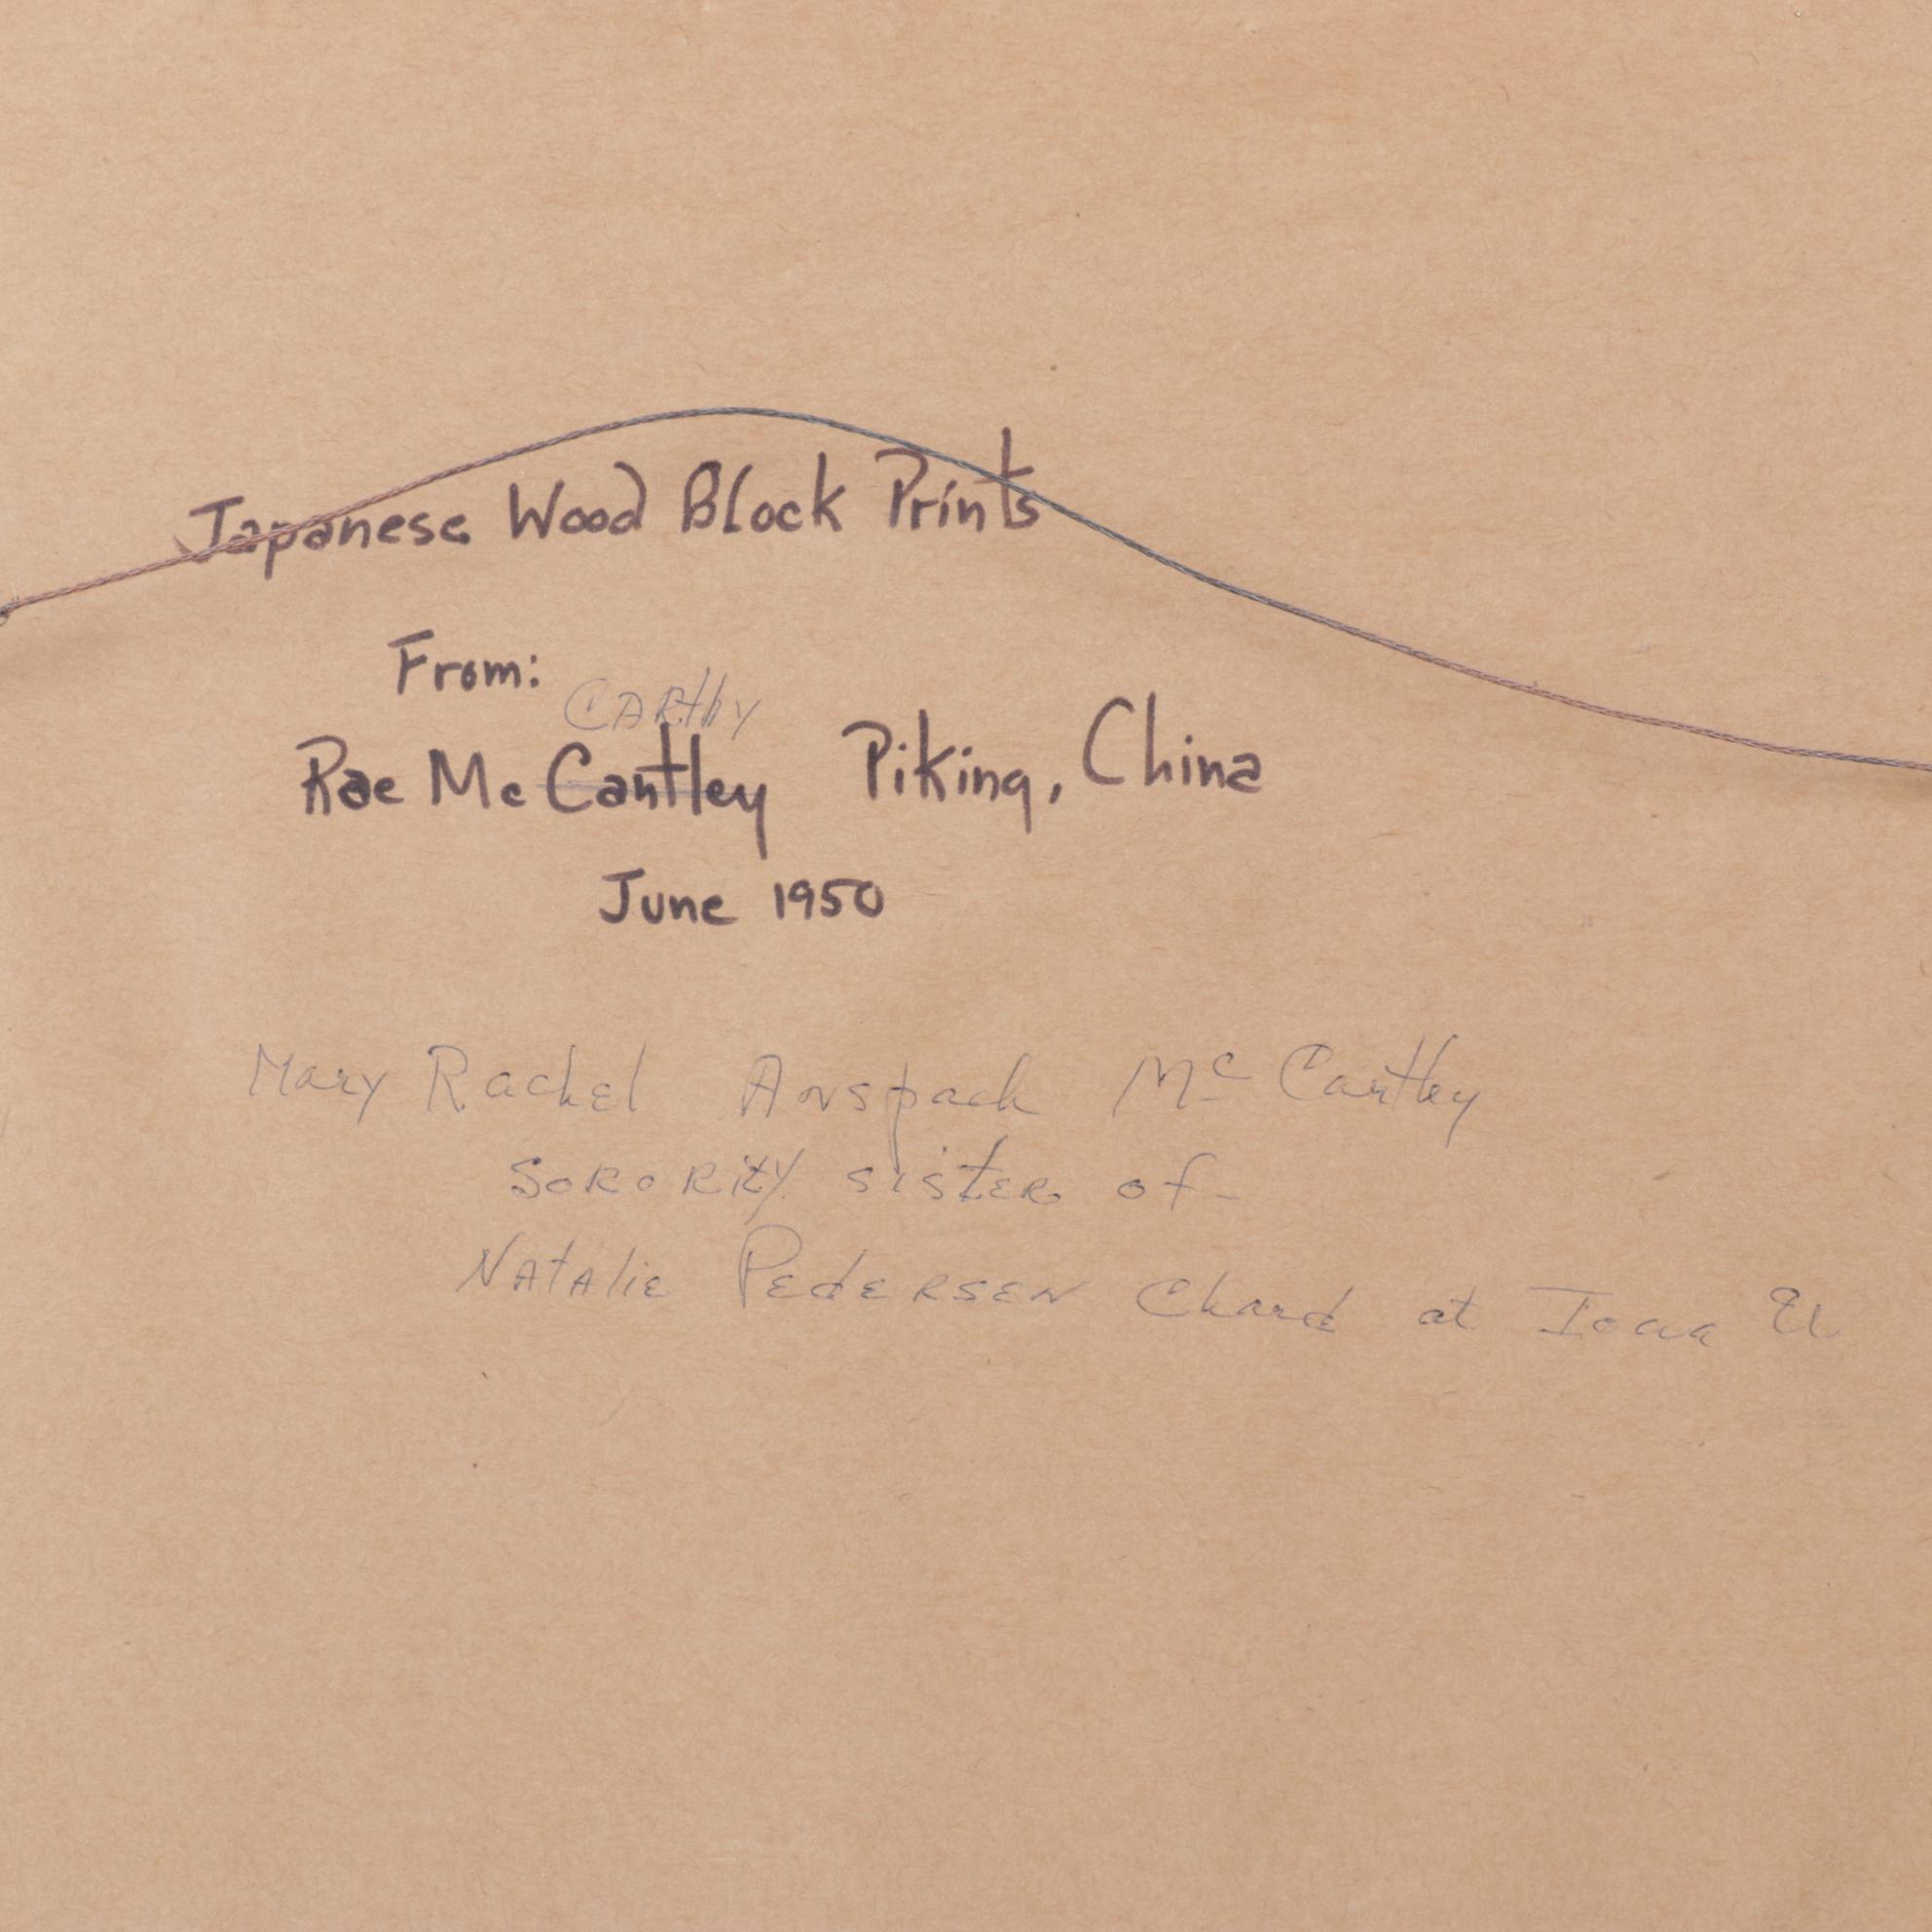 Japanese Wood Block Prints
From:
CARthy
Rae Mc Cantley Piking, China
June 1950
Mary Rachel Anspach Mc Carthy
Sorority sister of-
Natalie Pedersen Chard at Iowa U